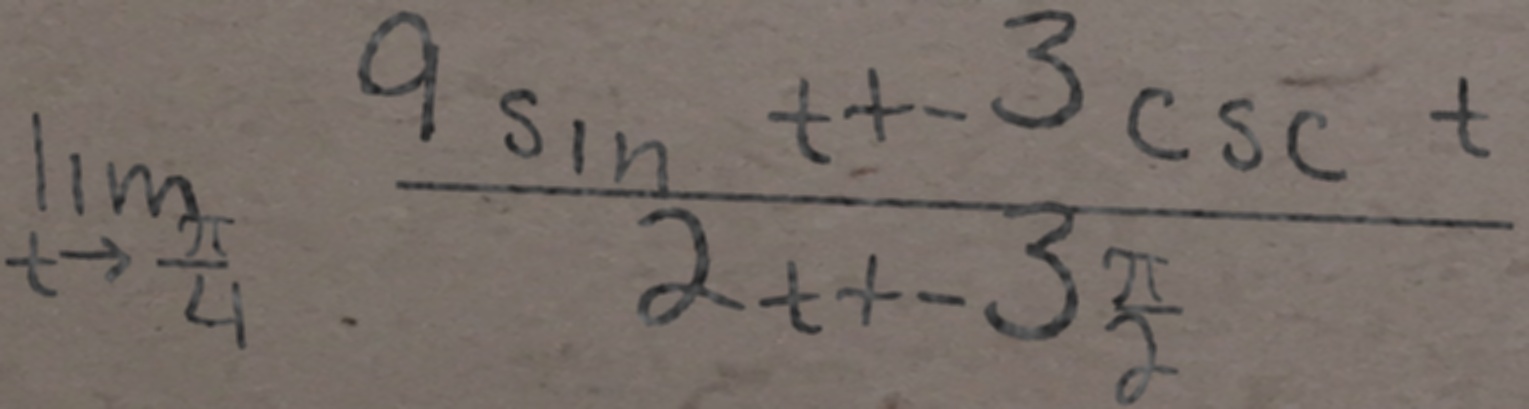 \lim_{t \to \frac{\pi}{4}} \frac{9 \sin t + -3 \csc t}{2t + -3 \frac{\pi}{2}}